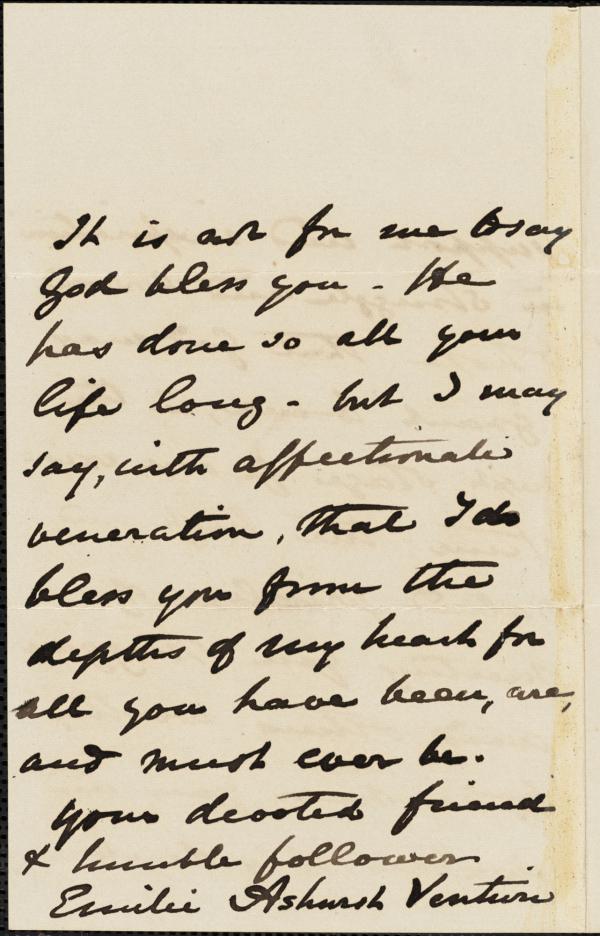 It is not for me to say
God bless you - He
has done so all your
life long - but I may
say, with affectionate
veneration, that I do
bless you from the
depths of my heart for
all you have been, are,
and must ever be.
your devoted friend
& humble follower
Emilie Ashurst Venturi